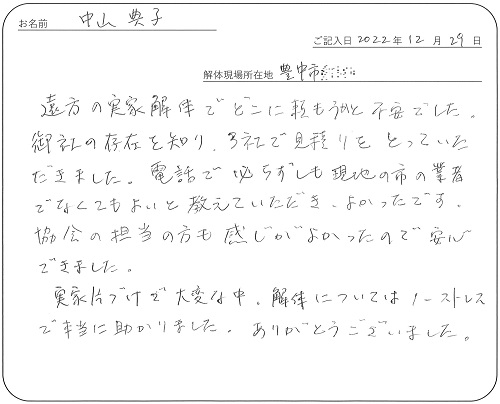 お名前 中山 典子
ご記入日 2022年 12月 29日
解体現場所在地 豊中市
遠方の実家解体でどこに頼もうかと不安でした。
御社の存在を知り、3社で見積りをとっていた
だきました。電話で必らずしも現地の市の業者
でなくてもよいと教えていただき、よかったです。
協会の担当の方も感じがよかったので安心
できました。
実家片づけで大変な中、解体についてはノーストレス
で本当に助かりました。ありがとうございました。